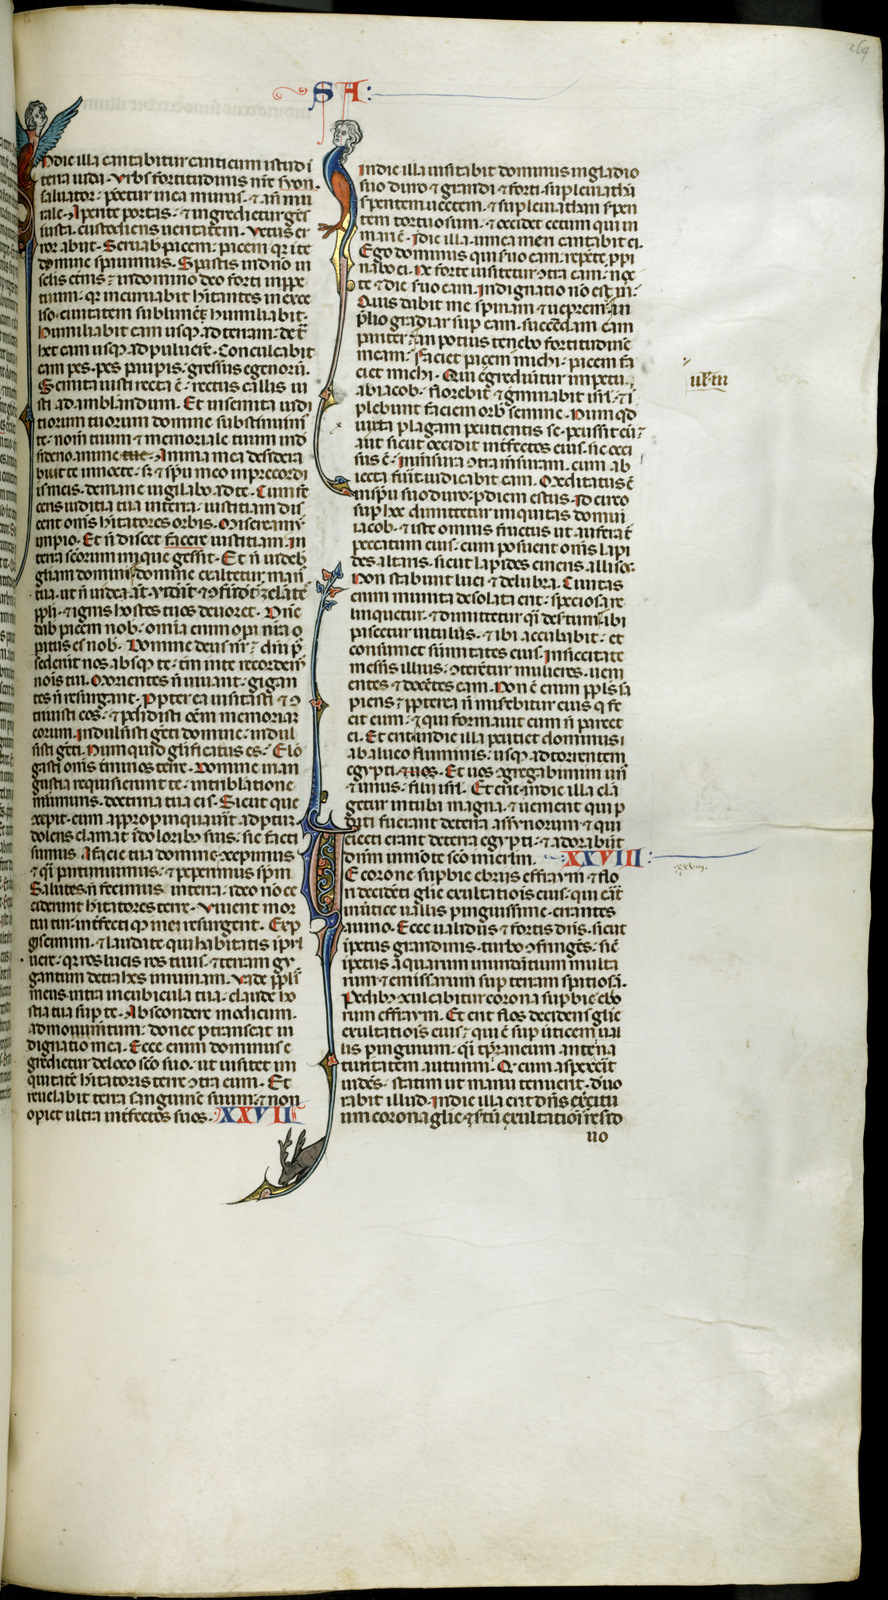 SA
In die illa cantabitur canticum istud i
terra iuda. Urbs fortitudinis nr̄e syon.
saluator. ponetur in ea murus. ⁊ an̄ mu
rale. Aperite portas. ⁊ ingredietur gēs
iusta. custodiens ueritatem. Vetus er
ror abiit. Seruab pacem. pacem qr̄ ite
domine sperauimus. Sperastis in dn̄o in
sclis et̄nis. ⁊ in domino deo forti inppe
tuum. qr̄ incuruabit hitantes in exce
lso. ciuitatem sublimē humiliabit.
humiliabit eam usqꝫ ad terram. det̄
het eam usqꝫ ad puluerē. Conculcabit
eam pes. pes paupis. gressus egenorum.
Semita iusti recta ē. rectus callis iu
sti ad amblandum. Et in semita iudi
tiorum tuorum domine substinuim
te. nom̄ tuum ⁊ memoriale tuum in d
siderio anime. Anima mea desidera
uit te in nocte. sꝫ ⁊ spū meo in precordi
is meis. de mane uigilabo ad te. Cum fec
eris iuditia tua in terra. iustitiam dis
cent om̄s hitatores orbis. Misereamr̄
impio. Et n̄ discet facere iustitiam. in
terra sc̄orum inique gessit. Et n̄ uideb
gliam domini. domine exaltetur man
tua. ut n̄ uideāt. uideāt ⁊ 9fūdāt̄ zelātē
ppli. ⁊ ignis hostes tuos deuoret. Dn̄e
dab pacem nob. omīa enim opā nr̄a o
patus es nob. Domine deus nr̄. dn̄i p̄
sederūt nos absqꝫ te. tm̄ in te recordem̄
nois tui. Morientes n̄ uiuant. gigan
tes n̄ resurgant. Ppterea uisitasti ⁊ 9
triuisti eos. ⁊ pdidisti oēm memoriaꝫ
eorum. Indulsisti gēti domine. indul
sisti gēti. Numquid glificatus es. Elō
gasti om̄s t̄minos terre. Domine in an
gustia requisierunt te. in tribulatione
murmuris. doctrina tua eis. Sicut que
9cepit. cum appropinquauīt ad ptuꝫ.
dolens clamat ī doloribꝫ suis. sic facti
sumus a facie tua domine. 9cepimus
⁊ q̄i parturiuimus. ⁊ peperimus spm̄
Salutes n̄ fecimus in terra. ideo nō ce
ciderunt hitatores terre. Viuent mor
tui tui. int̄fecti mei resurgent. Exp
giscemini. ⁊ laudate qui habitatis ī pul
uere. qr̄ ros lucis ros tuus. ⁊ terram gy
gantum detrahes in ruinam. Vade ppls̄
meus intra in cubicula tua. claude ho
stia tua sup te. Abscondere modicum.
ad momentum. donec ptranseat in
dignatio mea. Ecce enim dominus e
gredietur de loco sc̄o suo. ut uisitet in
iquitatē hitatoris terre 9tra eum. Et
reuelabit terra sanguinē suum. ⁊ non
opiet ultra int̄fectos suos. XXVII
In die illa uisitabit dominus in gladio
suo duro ⁊ grandi ⁊ forti. sup leuiathā
serpentem uectem. ⁊ sup leuiathan spen
tem tortuosum. ⁊ occidet cetum qui in
mari ē. In die illa uinea meri cantabit ei.
Ego dominus qui suo eam. repēte ppi
nabo ei. Ne forte uisitetur 9tra eam. noc
te ⁊ die suo eam. Indignatio nō est m̄.
Quis dabit me spinam ⁊ ueprem. in
p̄lio gradiar sup eam. succendam eam
pariter. An potius tenebo fortitudinē
meam. Faciet pacem michi. pacem fa
ciet michi. Qui egrediūtur impetu
ab iacob. florebit ⁊ gminabit isrl. ⁊ ī
plebunt faciem orb semine. Numqd
iuxta plagam pcutientis se. pcussit eū.
aut sicut occidit int̄fectos eius. sic occi
sus ē. In msura 9tra msuram. cum ab
iecta fūit iudicabit eam. Meditatus ē
in spū suo duro. p diem estus. Id circo
sup hec dimittetur iniquitas domui
iacob. ⁊ iste omnis fructus ut auferat̄
peccatum eius. cum posuerit om̄s lapi
des altaris. sicut lapides cineris allisos.
Non stabunt luci ⁊ delubra. Ciuitas
enim munita desolata erit. speciosa re
linquetur. ⁊ dimittetur q̄i desertum. ibi
pascetur uitulus. ⁊ ibi accubabit. et
consumet sūmitates eius. In siccitate
messis illius. 9terētur mulieres. ueni
entes ⁊ docētes eam. Non ē enim ppls sa
piens. ppterea n̄ miserebitur eius q̄ fe
cit eum. ⁊ qui formauit eum n̄ parcet
ei. Et erit. in die illa pcutiet dominus
ab alueo fluminis. usqꝫ ad torrentem
egypti. ⁊ uos. Et uos 9gregabimini un̄
⁊ unus. filii isrl. Et erit. in die illa clā
getur in tuba magna. ⁊ uenient qui p
diti fuerant de terra assyriorum ⁊ qui
eiecti erant de terra egypti. ⁊ adorabūt
dnm̄ in monte sc̄o in ierlm̄. XXVIII
Ue corone supbie ebrijs effraym. ⁊ flo
ri decidēti glie exultatiōis eius. qui erāt
in ūtice uallis pinguissime. errantes
a uino. Ecce ualidus ⁊ fortis dn̄s. sicut
ipetus grandinis. turbo 9fringēs. sic̄
ipetus aquarum inundātium multa
rum ⁊ emissarum sup terram spatiosā.
Pedibꝫ 9culcabitur corona supbie ebrio
rum effraym. Et erit flos decidens glie
exultatiōis eius. qui ē sup ūticem ual
lis pinguium. q̄i tp̄raneum ante ma
turitatem autumni. Qꝫ cum aspexerit
uidēs. statim ut manu tenuerit. deuo
rabit illud. In die illa erit dn̄s exercitu
um corona glie ⁊ sertū exultatiōis resido
uo